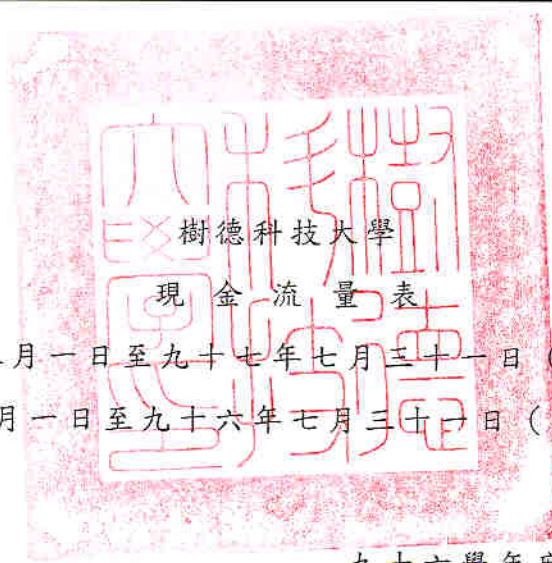 樹德科技大學
現金流量表
月一日至九十七年七月三十一日（
月一日至九十六年七月三十一日（
九十六學年度
樹德科技大學